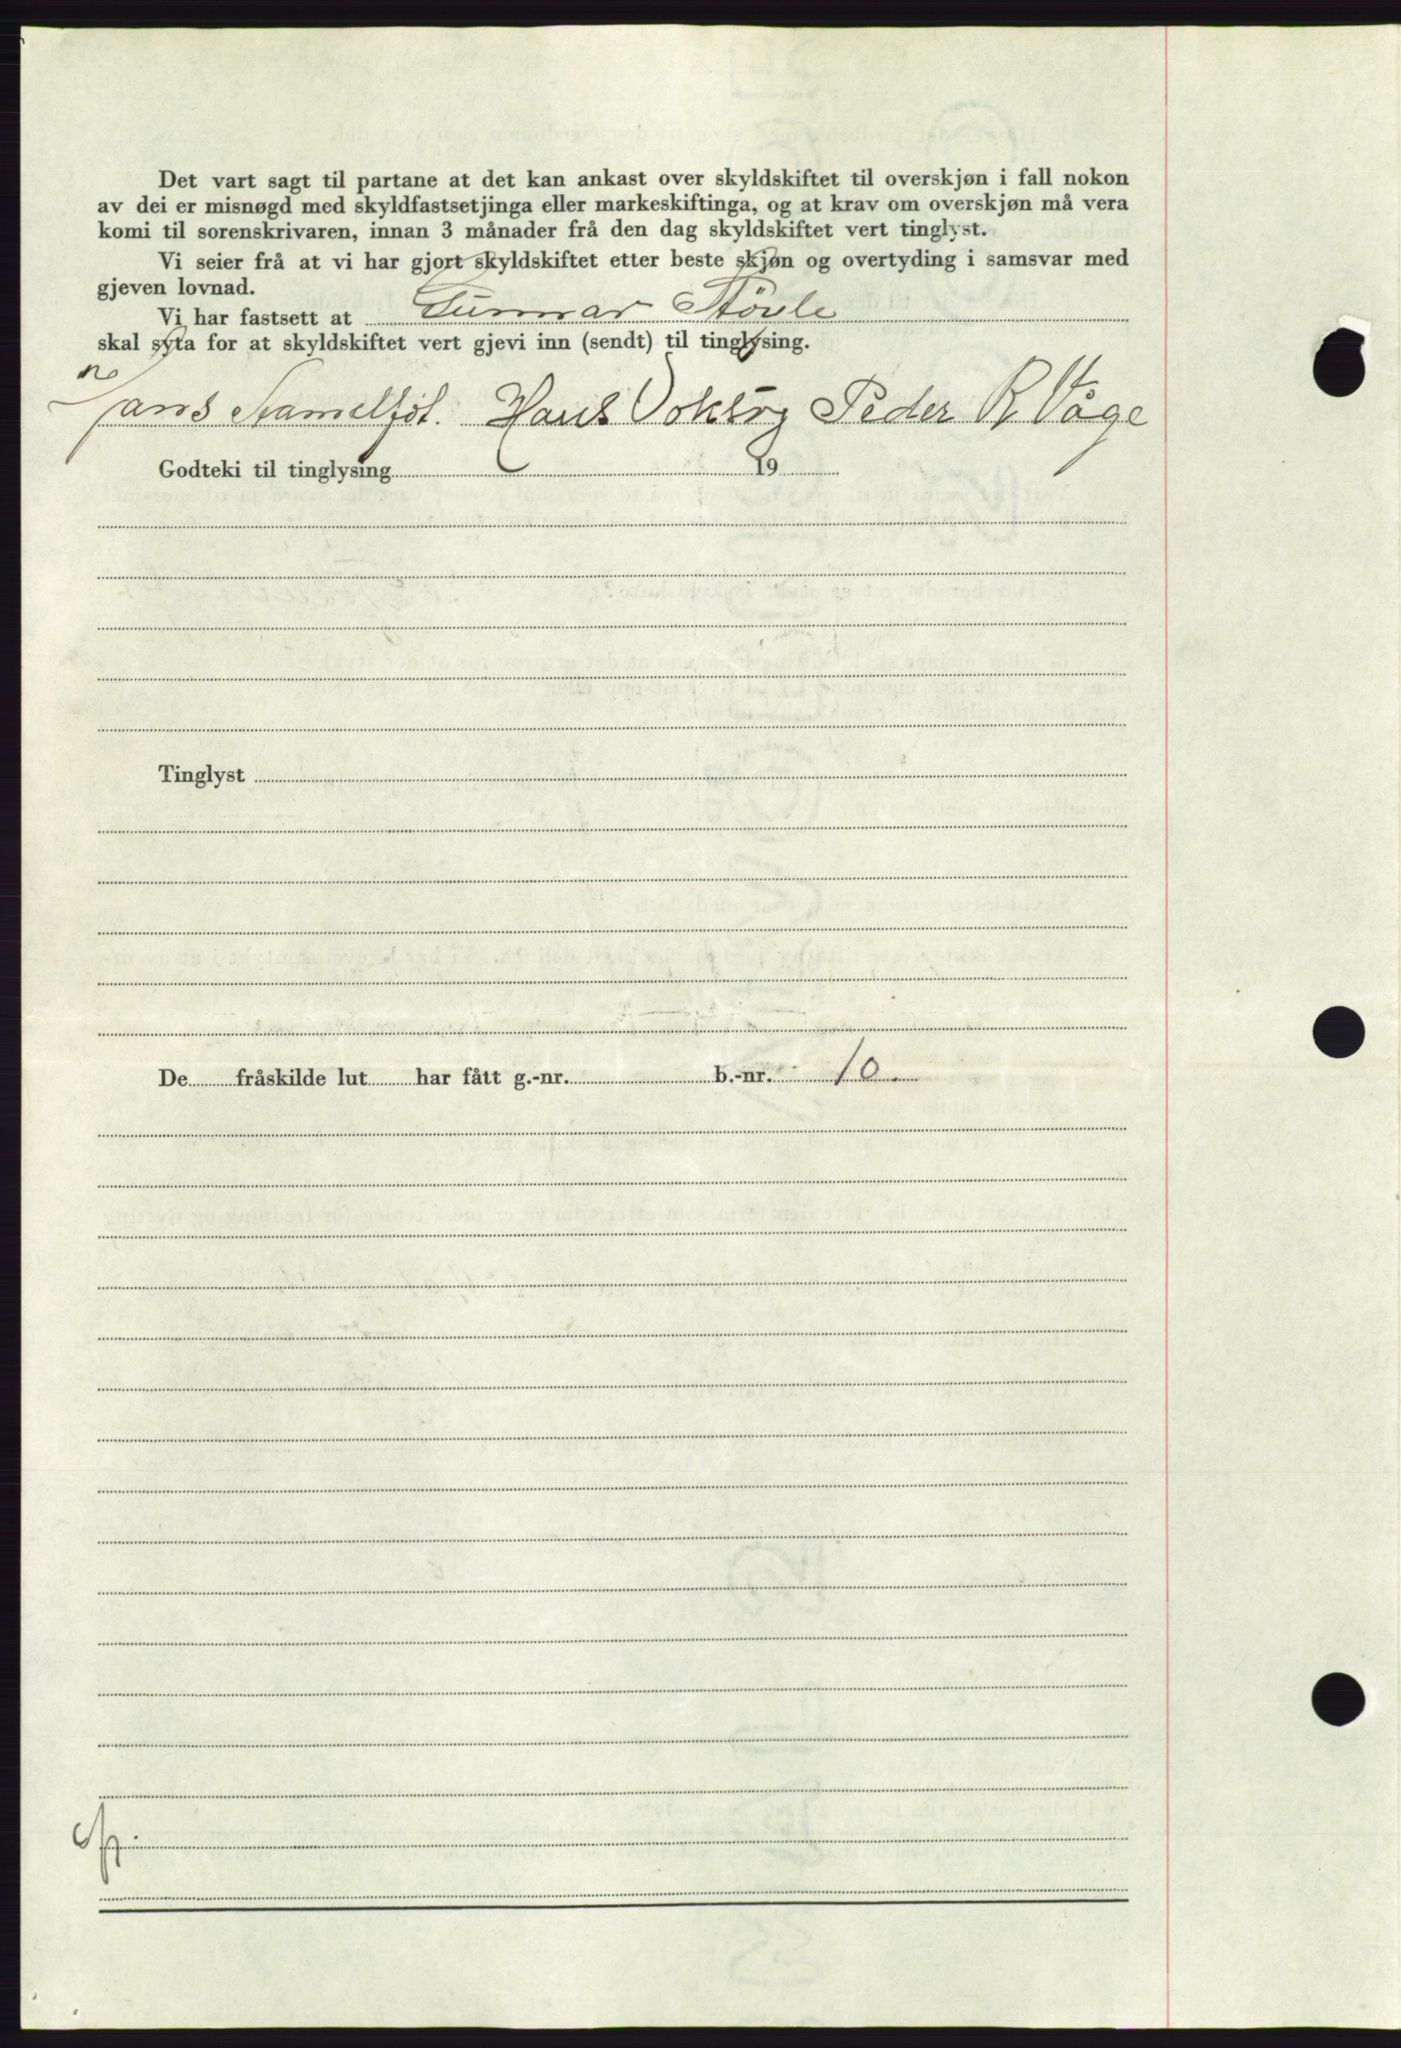 Det vart sagt til partane at det kan ankast over skyldskiftet til overskjøn i fall nokon
av dei er misnøgd med skyldfastsetjinga eller markeskiftinga, og at krav om overskjøn må vera
komi til sorenskrivaren, innan 3 månader frå den dag skyldskiftet vert tinglyst.
Vi seier frå at vi har gjort skyldskiftet etter beste skjøn og overtyding i samsvar med
gjeven lovnad.
Vi har fastsett at Gunnar Støvle
skal syta for at skyldskiftet vert gjevi inn (sendt) til tinglysing.
Hans Hans Voksøy Peder R Våge
Godteki til tinglysing 19
Tinglyst
De fråskilde lut har fått g.-nr. b.-nr. 10.